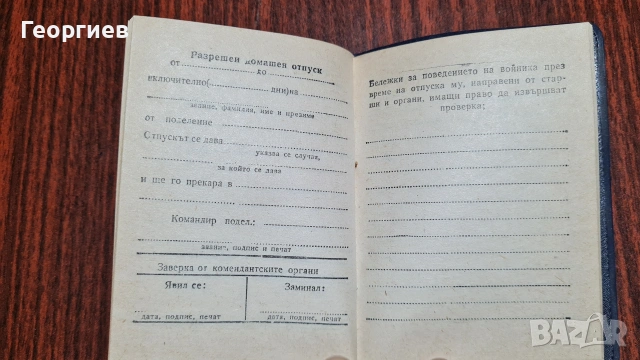 Георгиев
Разрешен домашен отпуск
от до
включително( дни)на
звание, фамилия, име и презиме
от поделение
Отпускът се дава
указва се случая,
за който се дава
и ще го прекара в
Командир подел.:
звание, подпис и печат
Заверка от комендантските органи
Явил се:
Заминал:
дата, подпис, печат
дата, подпис, печат
Бележки за поведението на войника през
време на отпуска му, направени от стар-
ши и органи, имащи право да извършват
проверка:
BAZAR